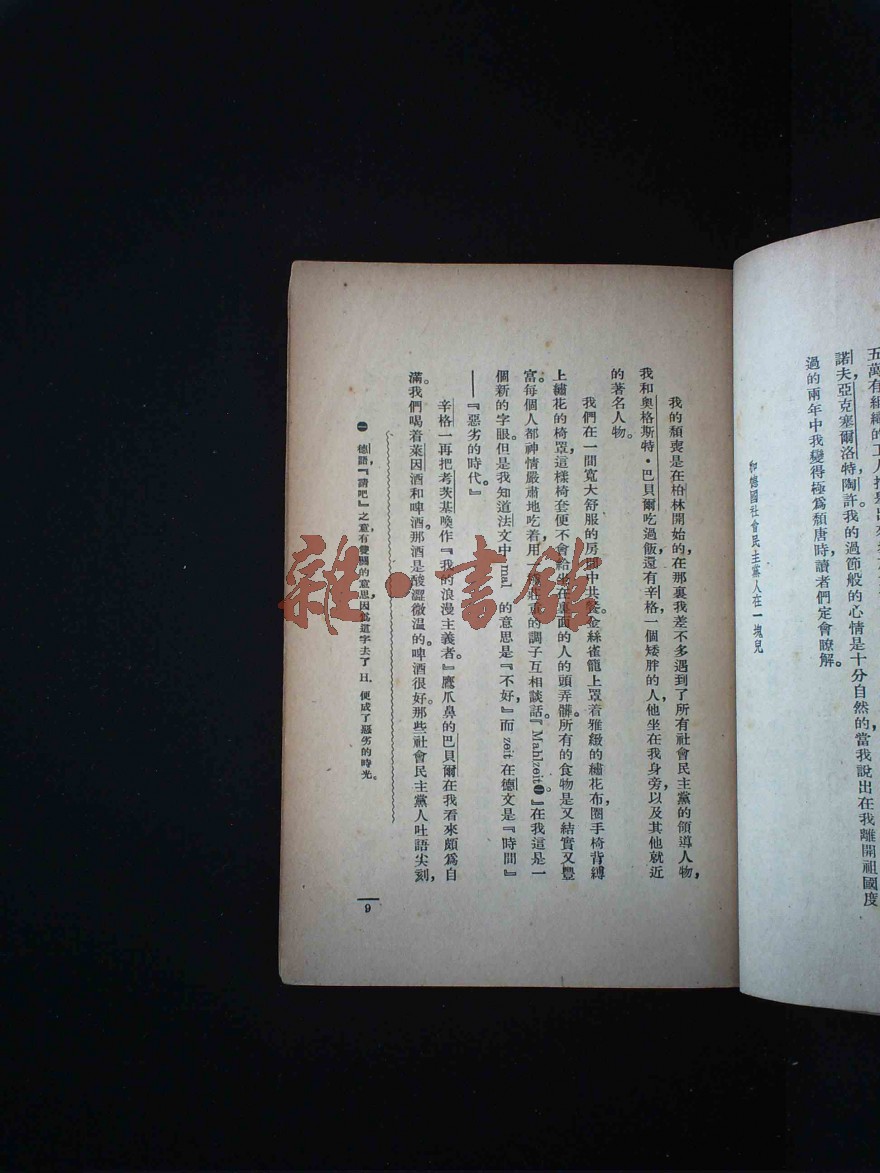 五萬有組織的工人投票出
諾夫亞克塞爾洛特陶許我的過節般的心情是十分自然的,當我說出在我離開祖國度
過的兩年中我變得極爲頽唐時,讀者們定會瞭解。
和德國社會民主黨人在一塊兒
我的頽喪是在柏林開始的,在那裏我差不多遇到了所有社會民主黨的領導人物,
我和奧格斯特·巴貝爾吃過飯,還有辛格一個矮胖的人,他坐在我身旁,以及其他就近
的著名人物。
我們在一間寬大舒服的房間中共餐。金絲雀籠上罩着雅緻的繡花布,圈手椅背縛
上繡花的椅罩,這樣椅套便不會給坐在裏面的人的頭弄髒。所有的食物是又結實又豐
富。每個人都神情嚴肅地吃着,用一種莊重的調子互相談話『Mahlzeit㊀。』在我這是一
個新的字眼。但是我知道法文中 mal 的意思是『不好』而 zeit 在德文是『時間』
——『惡劣的時代。』
辛格一再把考茨基喚作『我的浪漫主義者。』鷹爪鼻的巴貝爾在我看來頗爲自
滿。我們喝着萊因酒和啤酒。那酒是酸澀微溫的。啤酒很好。那些社會民主黨人吐語尖刻,
㊀ 德語,『請吧』之意,有雙關的意思,因爲這字去了 H. 便成了惡劣的時光。
9
雜·書館